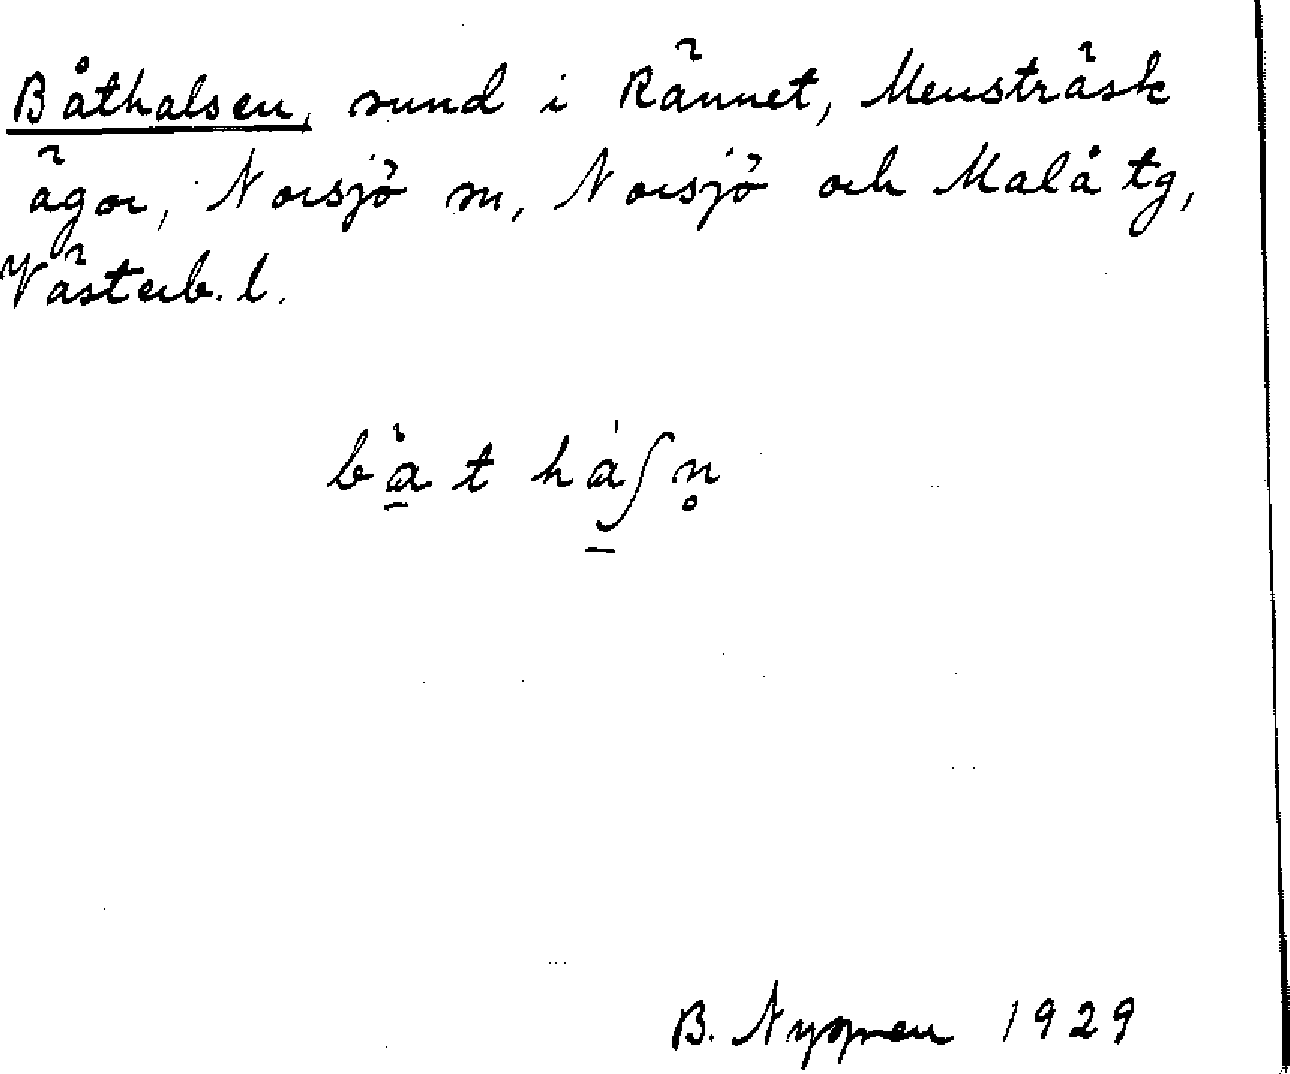 Båthalsen, sund i Rännet, Mensträsk
ägor, Norsjö sn, Norsjö och Malå tg,
Västerb. l.
båt háʃn̥
B. 1929